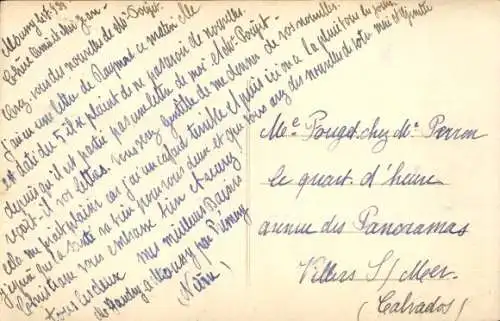 Chère Amie et cher Jean
Avez vous des nouvelles de Mr Pouget.
J'ai eu une lettre de Raymond ce matin elle
est datée du 5 il se plaint de ne pas avoir de nouvelles.
depuis qu'il est parti pas une lettre de moi et Mr Pouget
reçoit-il vos lettres. Vous seriez gentille de me donner de vos nouvelles.
cela me ferait plaisir car j'ai un cafard terrible et puis ici on a la pluie tous les jours
j'espère que la santé va bien pour vous deux et que vous avez des nouvelles de votre mari
Christiane vous embrasse bien et
tous les deux mes meilleurs Baisers
à Mouzay par Prémery
(Nièvre)
Me Pouget chez Me Perron
le quart d'heure
avenue des Panoramas
Villers S/Mer
(Calvados)